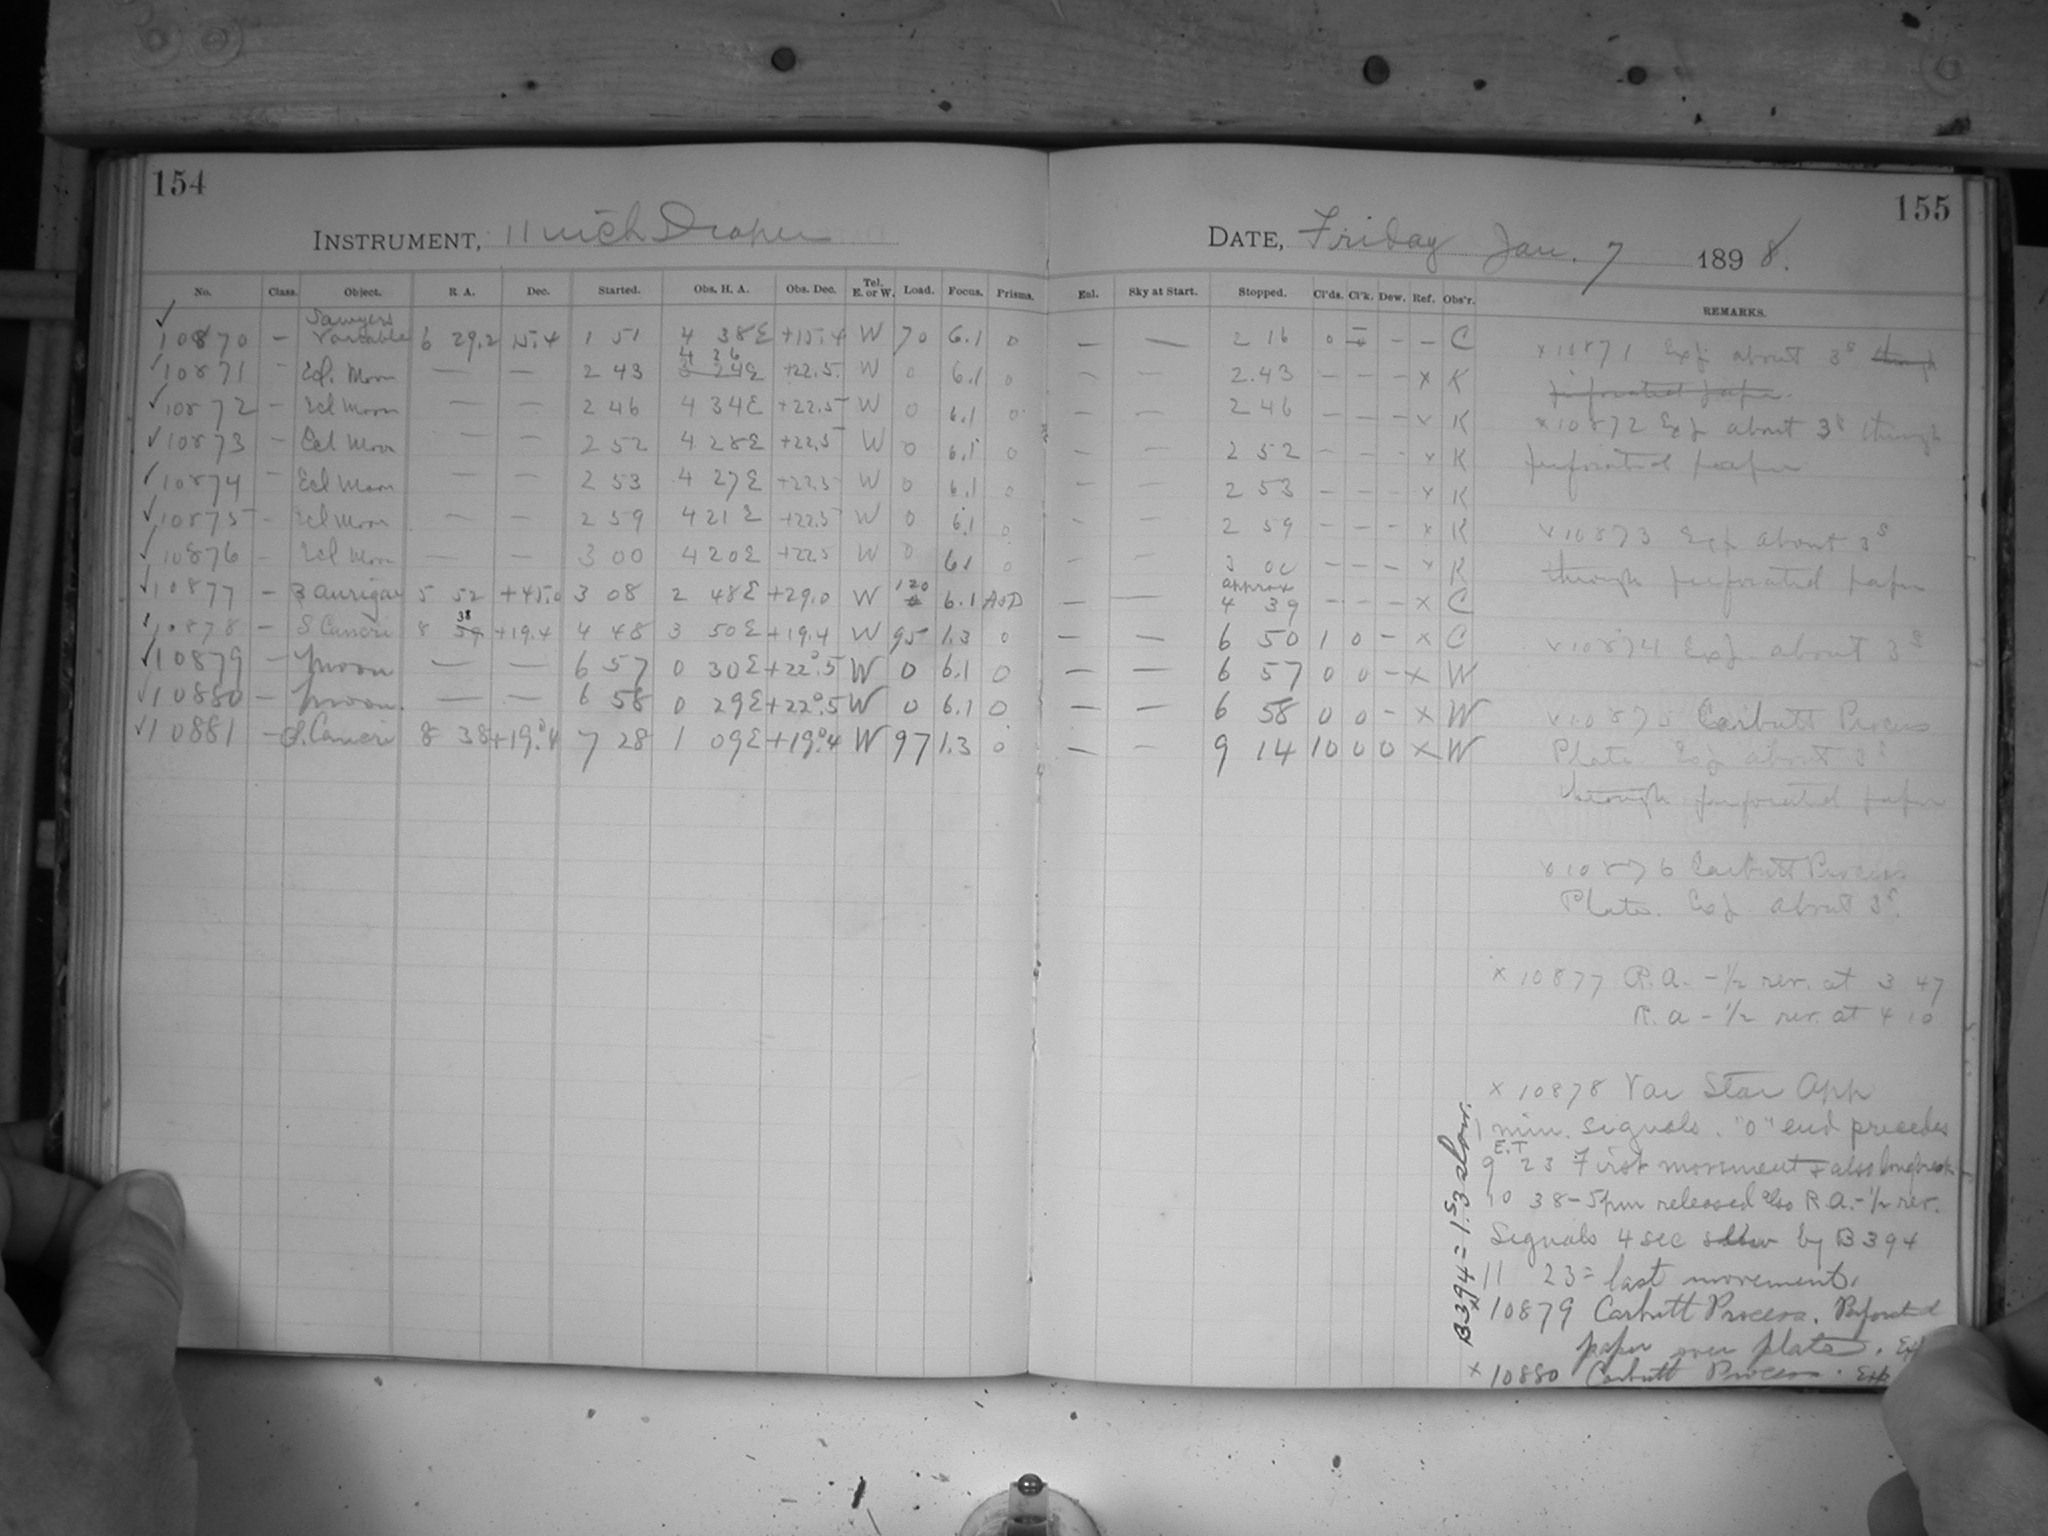 154
INSTRUMENT, 11 inch Draper
No. Class. Object. R. A. Dec. Started. Obs. H. A. Obs. Dec. Tel. E. or W. Load. Focus. Prisms.
10870 — Sawyers Variable 6 29.2 15.4 1 51 4 38 E +15.4 W 70 6.1 0
10871 — Ecl. Moon — — 2 43 4 36 3 24 E +22.5 W 0 6.1 0
10872 — Ecl Moon — — 2 46 4 34 E +22.5 W 0 6.1 0
10873 — Ecl Moon — — 2 52 4 28 E +22.5 W 0 6.1 0
10874 — Ecl Moon — — 2 53 4 27 E +22.5 W 0 6.1 0
10875 — Ecl Moon — — 2 59 4 21 E +22.5 W 0 6.1 0
10876 — Ecl Moon — — 3 00 4 20 E +22.5 W 0 6.1 0
10877 — β Aurigae 5 52 +45.0 3 08 2 48 E +29.0 W 120 6.1
10878 — S Cancri 8 38 39 +19.4 4 48 3 50 E +19.4 W 95 1.3 0
10879 — Moon — — 6 57 0 30 E +22°.5 W 0 6.1 0
10880 — Moon — — 6 58 0 29 E +22°.5 W 0 6.1 0
10881 — S. Cancri 8 38 +19°.4 7 28 1 09 E +19°.4 W 97 1.3 0
155
DATE, Friday Jan. 7 1898.
Enl. Sky at Start. Stopped. Cl'ds. Cl'k. Dew. Ref. Obs'r. REMARKS.
— — 2 16 0 — — C
— — 2.43 — — — x K
— — 2 46 — — — x K
— — 2 52 — — — x K
— — 2 53 — — — x K
— — 2 59 — — — x K
— — 3 00 — — — x K
— — approx 4 39 — — — x C
— — 6 50 1 0 — x C
— — 6 57 0 0 — x W
— — 6 58 0 0 — x W
— — 9 14 10 0 0 x W
x 10871 Exp about 3s through
perforated paper.
x 10872 Exp about 3s through
perforated paper
x 10873 Exp about 3s
through perforated paper
x 10874 Exp. about 3s
x 10875 Carbutt Process
Plate. Exp about 3s
through perforated paper
x 10876 Carbutt Process
Plate. Exp about 3s.
x 10877 R.A. -½ rev. at 3 47
R.A -½ rev. at 4 10
x 10878 Var Star App
1 min. signals. "0" end precedes
E.T
9 23 First movement & also long break
10 38 - 5pm released also R.A. -½ rev.
Signals 4 sec slow by B 394
11 23 = last movement.
x 10879 Carbutt Process. Perforated
paper over plate. Exp
x 10880 Carbutt Process. Exp
B394 = 1s.3 slow.